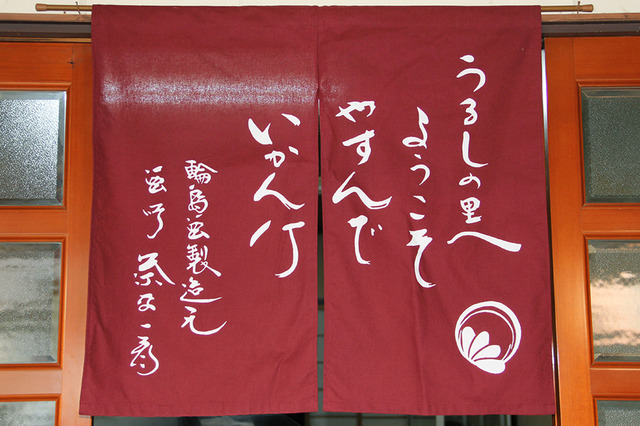 うるしの里へ
ようこそ
やすんで
いかんけ
輪島塗製造元